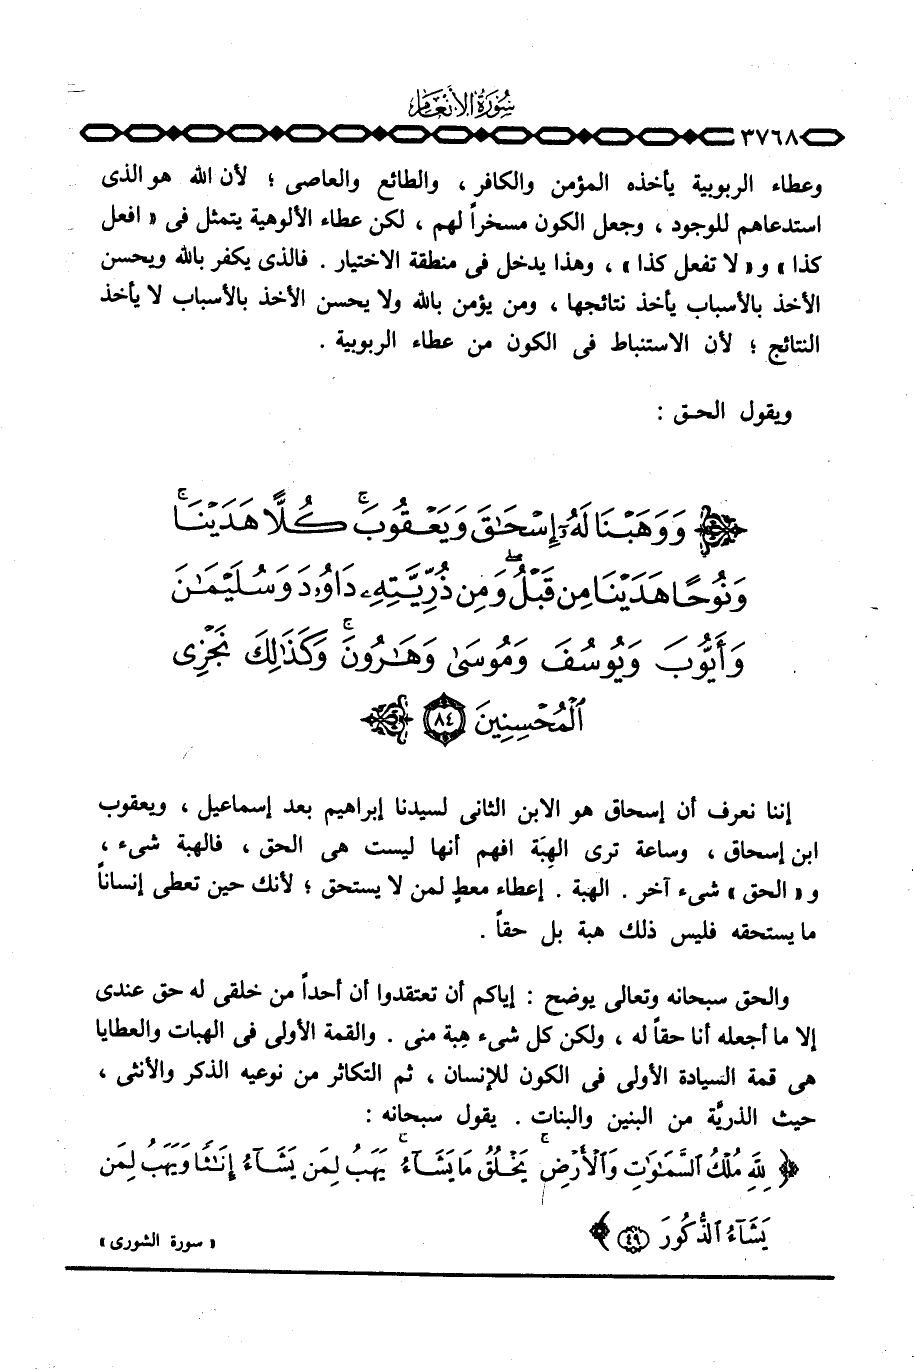 سُورَةُ الأَنْعَامِ
٣٧٦٨
وعطاء الربوبية يأخذه المؤمن والكافر ، والطائع والعاصى ؛ لأن الله هو الذى
استدعاهم للوجود ، وجعل الكون مسخراً لهم ، لكن عطاء الألوهية يتمثل فى « افعل
كذا » و« لا تفعل كذا » ، وهذا يدخل فى منطقة الاختيار . فالذى يكفر بالله ويحسن
الأخذ بالأسباب يأخذ نتائجها ، ومن يؤمن بالله ولا يحسن الأخذ بالأسباب لا يأخذ
النتائج ؛ لأن الاستنباط فى الكون من عطاء الربوبية .
ويقول الحق :
﴿ وَوَهَبْنَا لَهُۥٓ إِسْحَٰقَ وَيَعْقُوبَ ۚ كُلًّا هَدَيْنَا ۚ
وَنُوحًا هَدَيْنَا مِن قَبْلُ ۖ وَمِن ذُرِّيَّتِهِۦ دَاوُۥدَ وَسُلَيْمَٰنَ
وَأَيُّوبَ وَيُوسُفَ وَمُوسَىٰ وَهَٰرُونَ ۚ وَكَذَٰلِكَ نَجْزِى
ٱلْمُحْسِنِينَ ٨٤ ﴾
إننا نعرف أن إسحاق هو الابن الثانى لسيدنا إبراهيم بعد إسماعيل ، ويعقوب
ابن إسحاق ، وساعة ترى الهِبَة افهم أنها ليست هى الحق ، فالهبة شىء ،
و« الحق » شىء آخر . الهبة . إعطاء معطٍ لمن لا يستحق ؛ لأنك حين تعطى إنساناً
ما يستحقه فليس ذلك هبة بل حقاً .
والحق سبحانه وتعالى يوضح : إياكم أن تعتقدوا أن أحداً من خلقى له حق عندى
إلا ما أجعله أنا حقاً له ، ولكن كل شىء هِبة منى . والقمة الأولى فى الهبات والعطايا
هى قمة السيادة الأولى فى الكون للإنسان ، ثم التكاثر من نوعيه الذكر والأنثى ،
حيث الذريَّة من البنين والبنات . يقول سبحانه :
﴿ لِلَّهِ مُلْكُ ٱلسَّمَٰوَٰتِ وَٱلْأَرْضِ ۚ يَخْلُقُ مَا يَشَآءُ ۚ يَهَبُ لِمَن يَشَآءُ إِنَٰثًا وَيَهَبُ لِمَن
يَشَآءُ ٱلذُّكُورَ ٤٩ ﴾
« سورة الشورى »